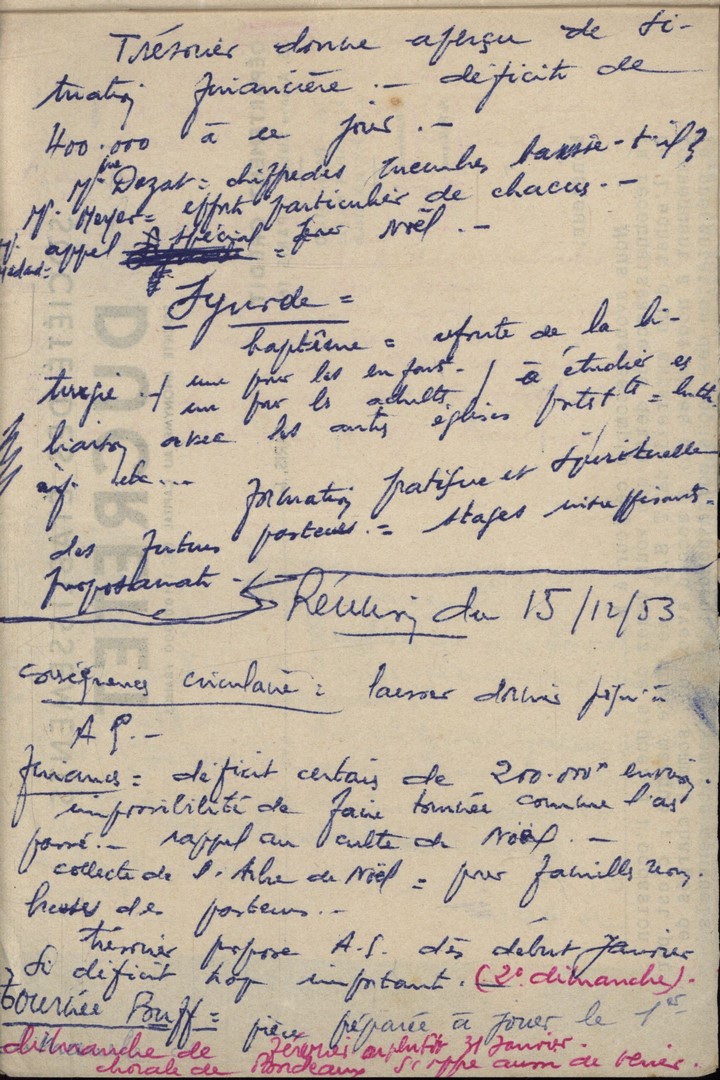 Trésorier donne aperçu de si-
tuation financière. - déficit de
400.000 à ce jour. -
Mr Dozat = chiffre des membres baisse-t-il?
Mr. Meyer = effort particulier de chacus. -
appel spécial = pour Noël. -
Synode =
baptême = refonte de la li-
turgie. - / une pour les enfants - / à étudier es
un pour les adultes
liaison avec les autres églises protest tes = luth
etc... formation pratique et spirituelle
des futurs pasteurs. = stages insuffisants -
proposanat -
Réunion du 15/12/53
conséquences circulaire = laisser dormir jusqu'à
A G. -
Finances = déficit certais de 200.000 environ.
impossibilité de faire tournée comme l'as
passé. - rappel au culte de Noël. -
collecte de l'Arbre de Noël = pour familles nom-
breuses des pasteurs. -
trésorier propose A.G. dès début Janvier
si déficit trop important. (2e dimanche).
Tournée = pièce préparée à jouer le 1er
dimanche de Février ou plutôt 31 Janvier.
chorale de Bordeaux s'offre aussi de venir.